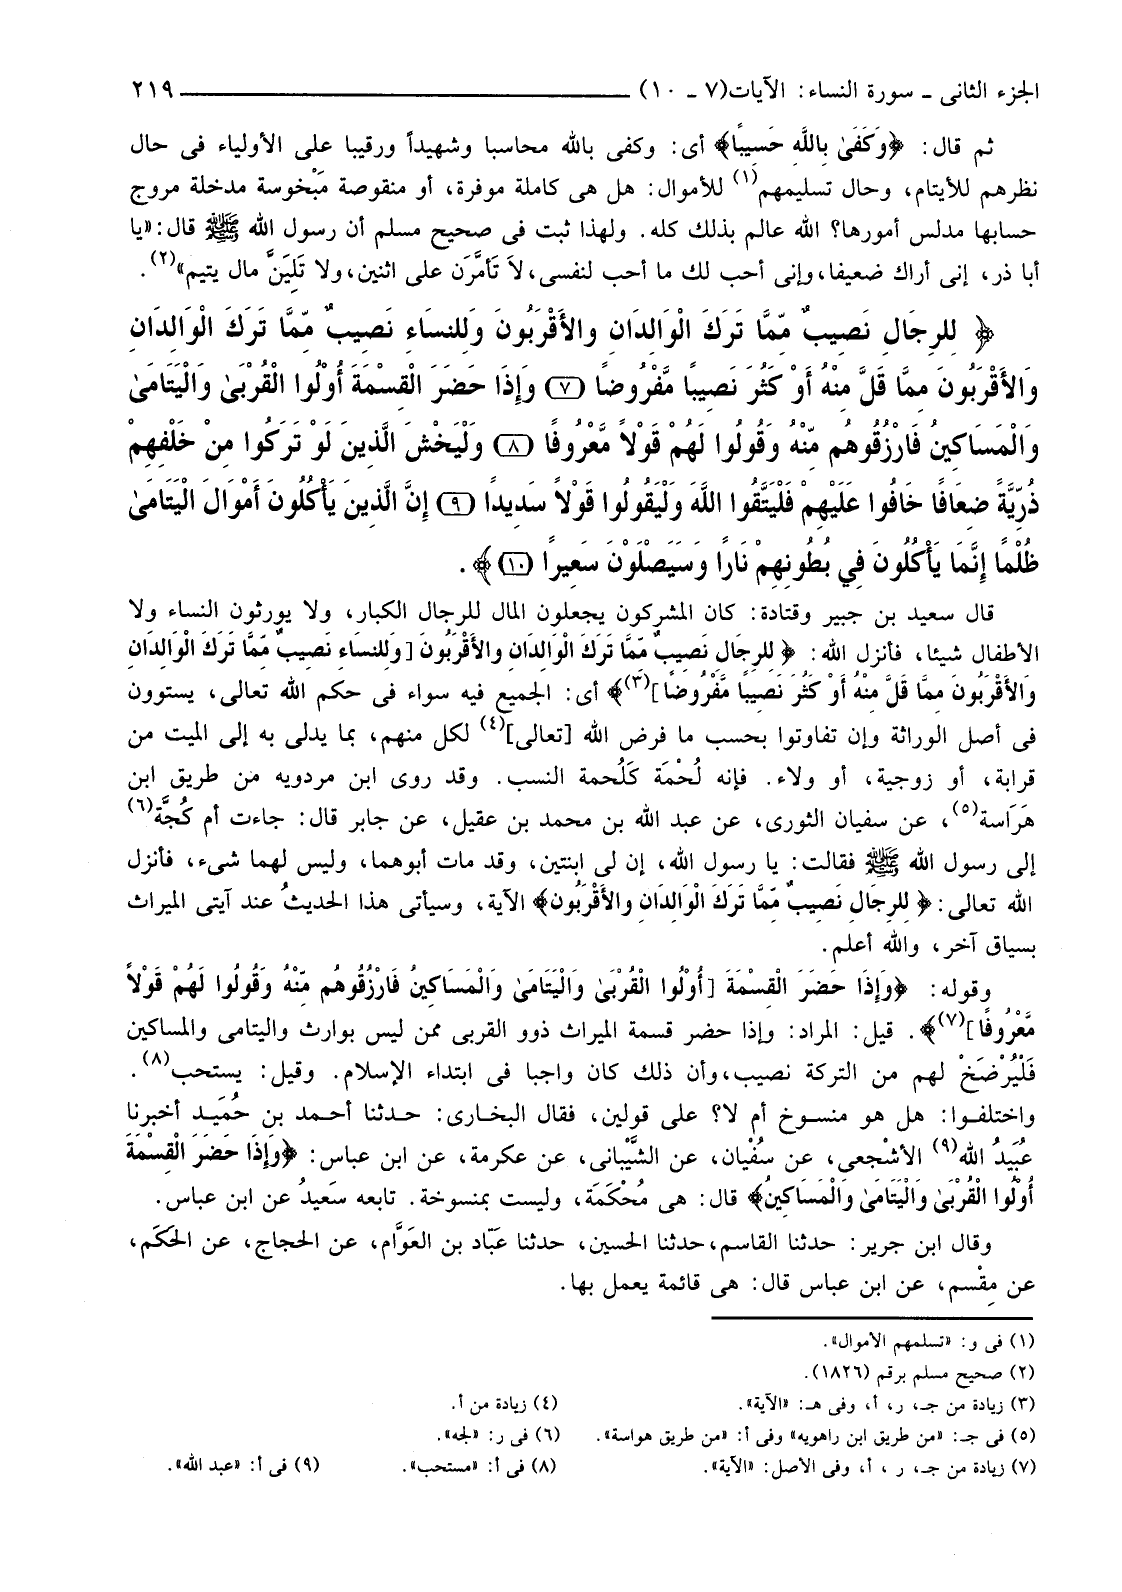 الجزء الثانى ـ سورة النساء: الآيات(٧ ـ ١٠) ٢١٩
ثم قال: ﴿وَكَفَىٰ بِاللَّهِ حَسِيبًا﴾ أى: وكفى بالله محاسبا وشهيداً ورقيبا على الأولياء فى حال
نظرهم للأيتام، وحال تسليمهم(١) للأموال: هل هى كاملة موفرة، أو منقوصة مَبْخوسة مدخلة مروج
حسابها مدلس أمورها؟ الله عالم بذلك كله. ولهذا ثبت فى صحيح مسلم أن رسول الله ﷺ قال:«يا
أبا ذر، إنى أراك ضعيفا،وإنى أحب لك ما أحب لنفسى،لاَ تَأمَّرَن على اثنين،ولا تَلِيَنَّ مال يتيم»(٢).
﴿ لِلرِجَالِ نَصِيبٌ مِّمَّا تَرَكَ الْوَالِدَانِ وَالأَقْرَبُونَ وَلِلنِسَاءِ نَصِيبٌ مِّمَّا تَرَكَ الْوَالِدَانِ
وَالأَقْرَبُونَ مِمَّا قَلَّ مِنْهُ أَوْ كَثُرَ نَصِيبًا مَّفْرُوضًا (٧) وَإِذَا حَضَرَ الْقِسْمَةَ أُوْلُوا الْقُرْبَىٰ وَالْيَتَامَىٰ
وَالْمَسَاكِينُ فَارْزُقُوهُم مِّنْهُ وَقُولُوا لَهُمْ قَوْلاً مَّعْرُوفًا (٨) وَلْيَخْشَ الَّذِينَ لَوْ تَرَكُوا مِنْ خَلْفِهِمْ
ذُرِّيَّةً ضِعَافًا خَافُوا عَلَيْهِمْ فَلْيَتَّقُوا اللَّهَ وَلْيَقُولُوا قَوْلاً سَدِيدًا (٩) إِنَّ الَّذِينَ يَأْكُلُونَ أَمْوَالَ الْيَتَامَىٰ
ظُلْمًا إِنَّمَا يَأْكُلُونَ فِي بُطُونِهِمْ نَارًا وَسَيَصْلَوْنَ سَعِيرًا (١٠)﴾ .
قال سعيد بن جبير وقتادة: كان المشركون يجعلون المال للرجال الكبار، ولا يورثون النساء ولا
الأطفال شيئا، فأنزل الله: ﴿ لِلرِجَالِ نَصِيبٌ مِّمَّا تَرَكَ الْوَالِدَانِ وَالأَقْرَبُونَ [وَلِلنِسَاءِ نَصِيبٌ مِّمَّا تَرَكَ الْوَالِدَانِ
وَالأَقْرَبُونَ مِمَّا قَلَّ مِنْهُ أَوْ كَثُرَ نَصِيبًا مَّفْرُوضًا](٣)﴾ أى: الجميع فيه سواء فى حكم الله تعالى، يستوون
فى أصل الوراثة وإن تفاوتوا بحسب ما فرض الله [تعالى](٤) لكل منهم، بما يدلى به إلى الميت من
قرابة، أو زوجية، أو ولاء. فإنه لُحْمَة كَلُحمة النسب. وقد روى ابن مردويه من طريق ابن
هَرَاسة(٥)، عن سفيان الثورى، عن عبد الله بن محمد بن عقيل، عن جابر قال: جاءت أم كُجَّة(٦)
إلى رسول الله ﷺ فقالت: يا رسول الله، إن لى ابنتين، وقد مات أبوهما، وليس لهما شىء، فأنزل
الله تعالى:﴿ لِلرِجَالِ نَصِيبٌ مِّمَّا تَرَكَ الْوَالِدَانِ وَالأَقْرَبُونَ﴾ الآية، وسيأتى هذا الحديثُ عند آيتى الميراث
بسياق آخر، والله أعلم.
وقوله: ﴿وَإِذَا حَضَرَ الْقِسْمَةَ [أُوْلُوا الْقُرْبَىٰ وَالْيَتَامَىٰ وَالْمَسَاكِينُ فَارْزُقُوهُم مِّنْهُ وَقُولُوا لَهُمْ قَوْلاً
مَّعْرُوفًا](٧)﴾. قيل: المراد: وإذا حضر قسمة الميراث ذوو القربى ممن ليس بوارث واليتامى والمساكين
فَلْيُرْضَخْ لهم من التركة نصيب،وأن ذلك كان واجبا فى ابتداء الإسلام. وقيل: يستحب(٨).
واختلفوا: هل هو منسوخ أم لا؟ على قولين، فقال البخارى: حدثنا أحمد بن حُمَيد أخبرنا
عُبَيدُ الله(٩) الأشْجعى، عن سُفْيان، عن الشَّيْبانى، عن عكرمة، عن ابن عباس: ﴿وَإِذَا حَضَرَ الْقِسْمَةَ
أُوْلُوا الْقُرْبَىٰ وَالْيَتَامَىٰ وَالْمَسَاكِينُ﴾ قال: هى مُحْكَمَة، وليست بمنسوخة. تابعه سَعيدُ عن ابن عباس.
وقال ابن جرير: حدثنا القاسم،حدثنا الحسين، حدثنا عَبّاد بن العَوَّام، عن الحجاج، عن الحَكَم،
عن مِقْسم، عن ابن عباس قال: هى قائمة يعمل بها.
(١) فى و: «تسلمهم الأموال».
(٢) صحيح مسلم برقم (١٨٢٦).
(٣) زيادة من جـ، ر، أ، وفى هـ: «الآية». (٤) زيادة من أ.
(٥) فى جـ: «من طريق ابن راهويه» وفى أ: «من طريق هواسة». (٦) فى ر: «لجه».
(٧) زيادة من جـ، ر ، أ، وفى الأصل: «الآية». (٨) فى أ: «مستحب». (٩) فى أ: «عبد الله».